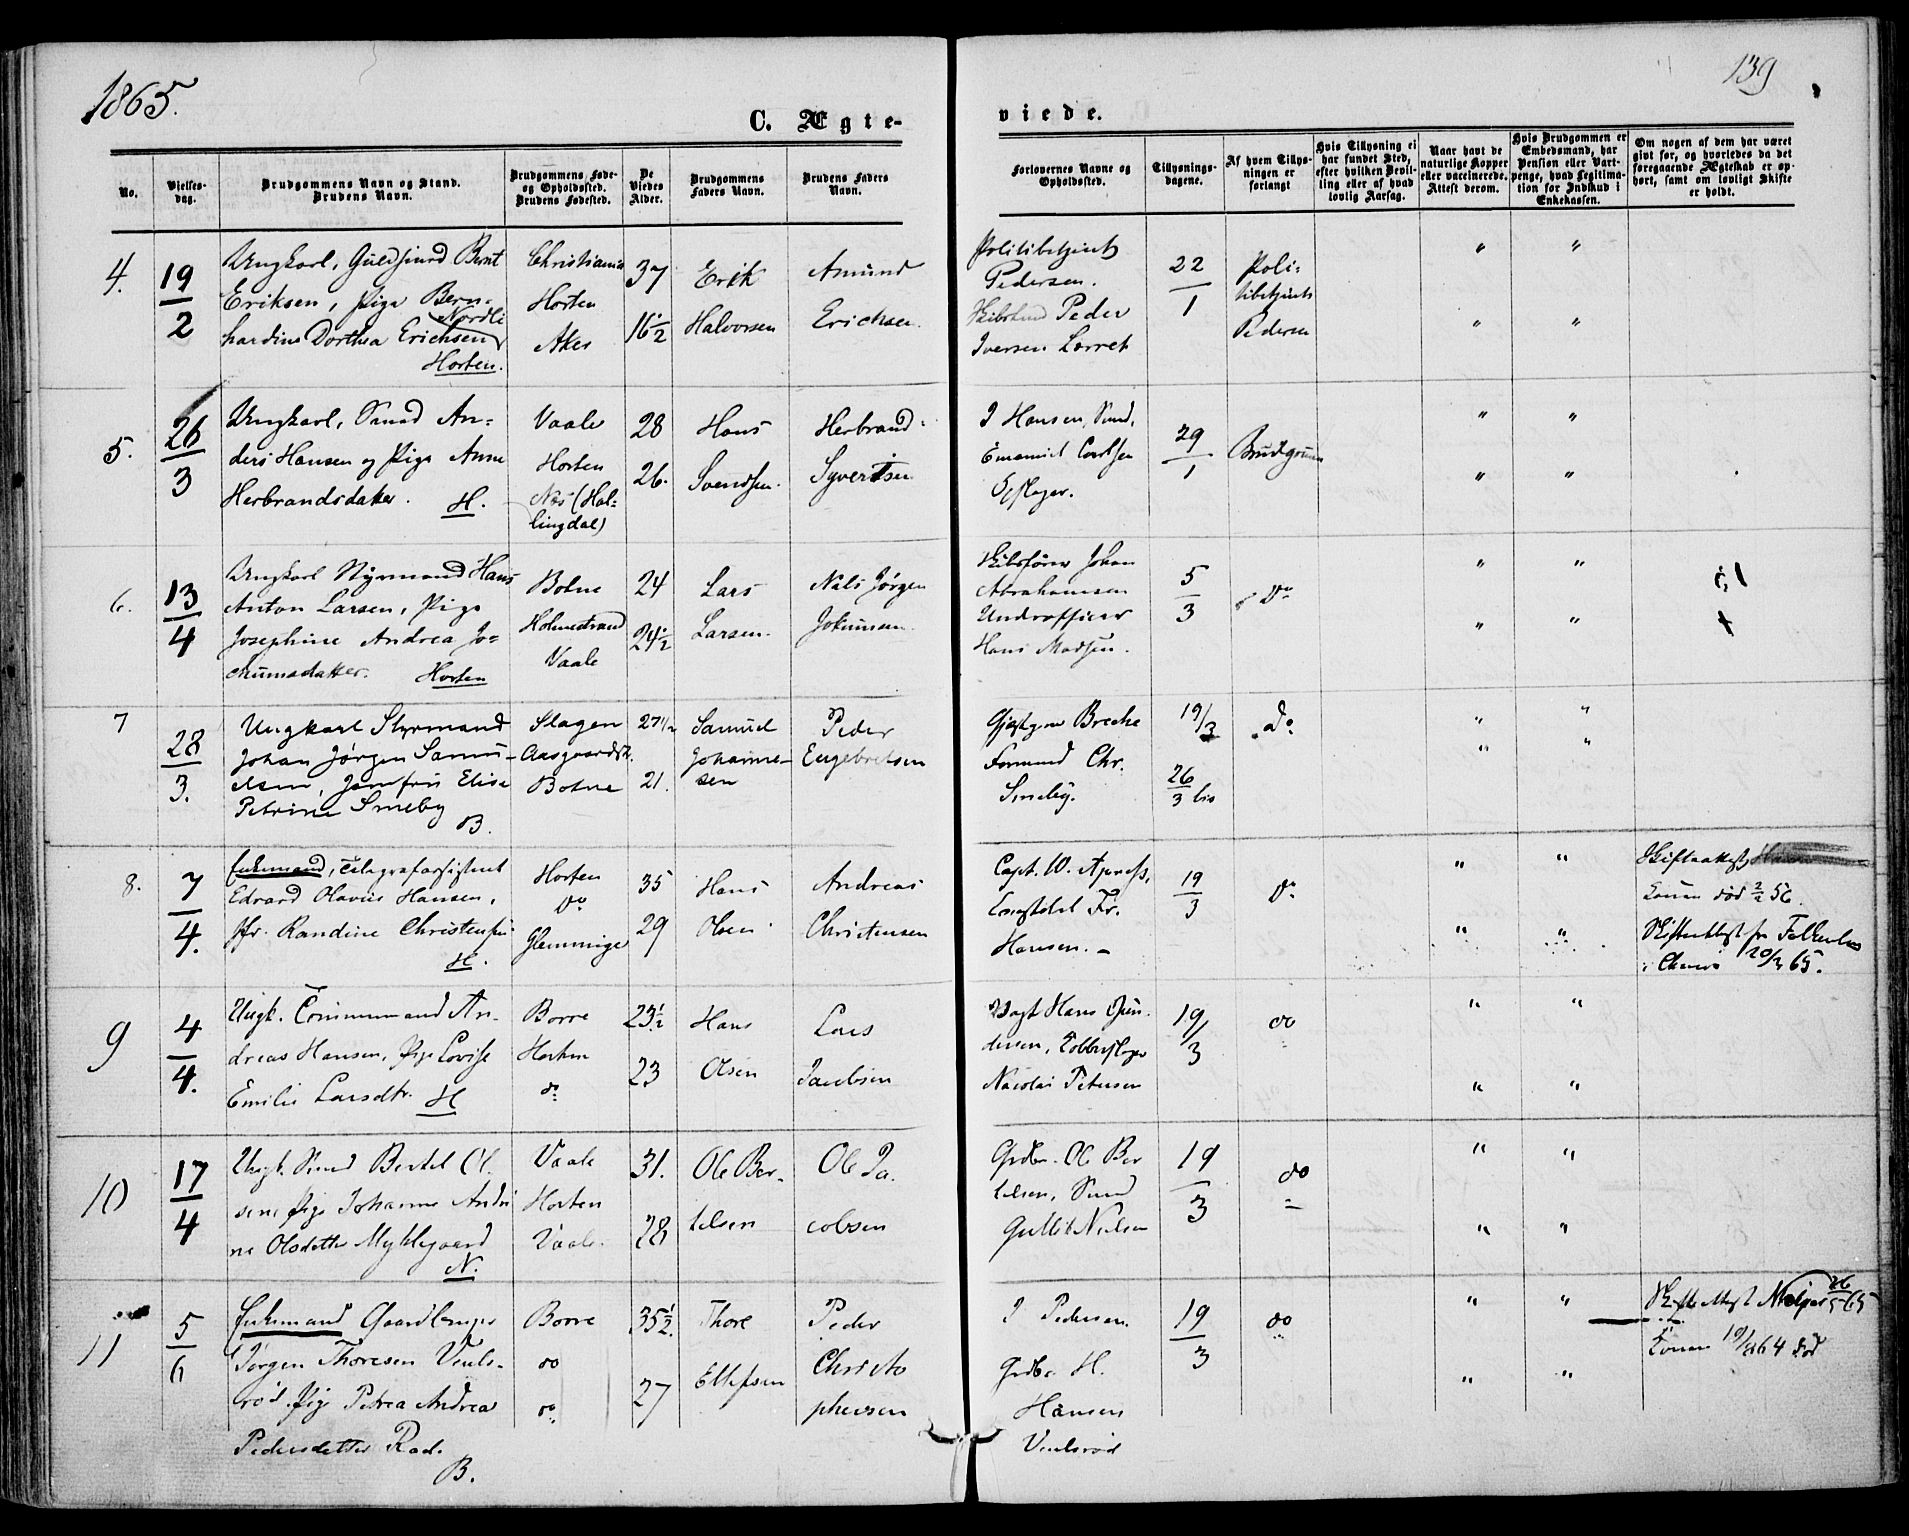 1865.
139
C. Ægte-
viede.
No.
Vielses-
dag.
Brudgommens Navn og Stand.
Brudens Navn.
Brudgommens Føde-
og Opholdssted.
Brudens Fødested.
De
Viedes
Alder.
Brudgommens
Faders Navn.
Brudens Faders
Navn.
Forlovernes Navne og
Opholdssted.
Tillysnings-
dagene.
Af hvem Tillys-
ningen er
forlangt
Hvis Tillysning ei
har fundet Sted,
efter hvilken Bevil-
ling eller af hvad
lovlig Aarsag.
Naar havt de
naturlige Kopper
eller vaccinerede.
Attest derom.
Hvis Brudgommen er
Embedsmand, har
Pension eller Vart-
penge, hvad Legitima-
tion for Indskud i
Enkekassen.
Om nogen af dem har været
gift før, og hvorledes da det
foregaaende Ægteskab er op-
hørt, samt om lovligt Skifte
er holdt.
4.
19/2
Ungkarl, Guldsmed Bernt
Eriksen, Pige Bern-
Nordli
hardine Dorthea Erichsen
Horten.
Christiania
Horten
Aker
37
16½
Erik
Halvorsen
Amund
Erichsen.
Politibetjent
Pedersen.
Peder
Iversen Lorret
22/1
Poli-
tibetjent
Pedersen
" "
" "
5.
26/3
Ungkarl, Smed An-
ders Hansen og Pige Anne
Herbrandsdatter. H.
Vaale
Horten
Næs (Hal-
lingdal)
28
26.
Hans
Svendsen.
Herbrand
Syvertsen
J Hansen, Smed,
Emanuel Carlsen
29/1
Brudgommen
" "
" "
6.
13/4
Ungkarl Styrmand Hans
Anton Larsen, Pige
Josephine Andrea Jo-
chumsdatter. Horten
Botne
Holmestrand
Vaale
24
24½
Lars
Larsen.
Nils Jørgen
Jokumsen
Skibsfører Johan
Abrahamsen
Underofficer
Hans Madsen.
5/3
Do
" "
" "
7
28/3.
Ungkarl Styrmand
Johan Jørgen Samu-
elsen, Jomfru Elise
Petrine Smeby
B.
Slagen
Aasgaardst.
Botne
27½
21.
Samuel
Johanne-
sen
Peder
Engebretsen
Gjæstgiver Breche
Formand Chr.
Smeby.
19/3
26/3 bis
do
" "
" "
8.
7/4.
Enkemand, Telegrafassistent
Edvard Olavus Hansen,
Jfr. Randine Christensen
H.
Horten
Do
Glemminge
35
29
Hans
Olsen
Andreas
Christensen
Capt. W. Apness,
Fr.
Hansen. –
19/3
Do
" "
" "
Skifteattest
Konen død 2/2 56.
Skifteattest fr
i 20/3 65.
9
4/4.
Ungk. Tømmermand An-
dreas Hansen, Pige Lovise
Emilie Larsdtr. H
Borre
Horten
do
23½
23
Hans
Olsen
Lars
Jacobsen
Vagt Hans Gun-
dersen, Kobberslager
Nicolai Petersen
19/3
do
" "
" "
10
17/4
Ungk. Smed Bertel Ol-
sen, Pige Johanne Andri
ne Olsdatter Myklegaard
N.
Vaale
Horten
Vaale.
31.
28
Ole Ber-
telsen
Ole Ja-
cobsen
Grdbr. Ole Ber
telsen, Smed
Gullik Nielsen
19/3
do
" "
" "
11
5/6
Enkemand Gaardbruger
Jørgen Thoresen Veuls-
rød. Pige Petrea Andrea
Pedersdatter Rød.
B.
Borre
do
do
35½.
27
Thore
Ellefsen
Peder
Christo
phersen
J Pedersen.
Grdbr H.
Hansen
Veulsrød
19/3
do
" "
" "
Skifte Attest 26/5 65
Konen 64 død